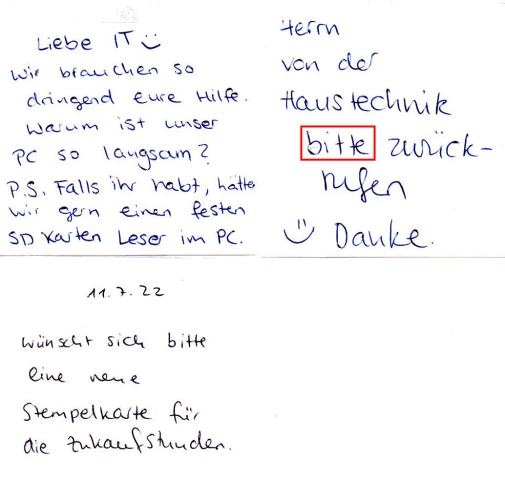 Liebe IT
Wir brauchen so
dringend eure Hilfe.
Warum ist unser
PC so langsam?
P.S. Falls ihr habt, hätte
wir gern einen festen
SD Karten Leser im PC.
Herrn
von der
Haustechnik
bitte zurück-
rufen
Danke.
11.7.22
wünscht sich bitte
eine neue
Stempelkarte für
die Zukaufstunden.